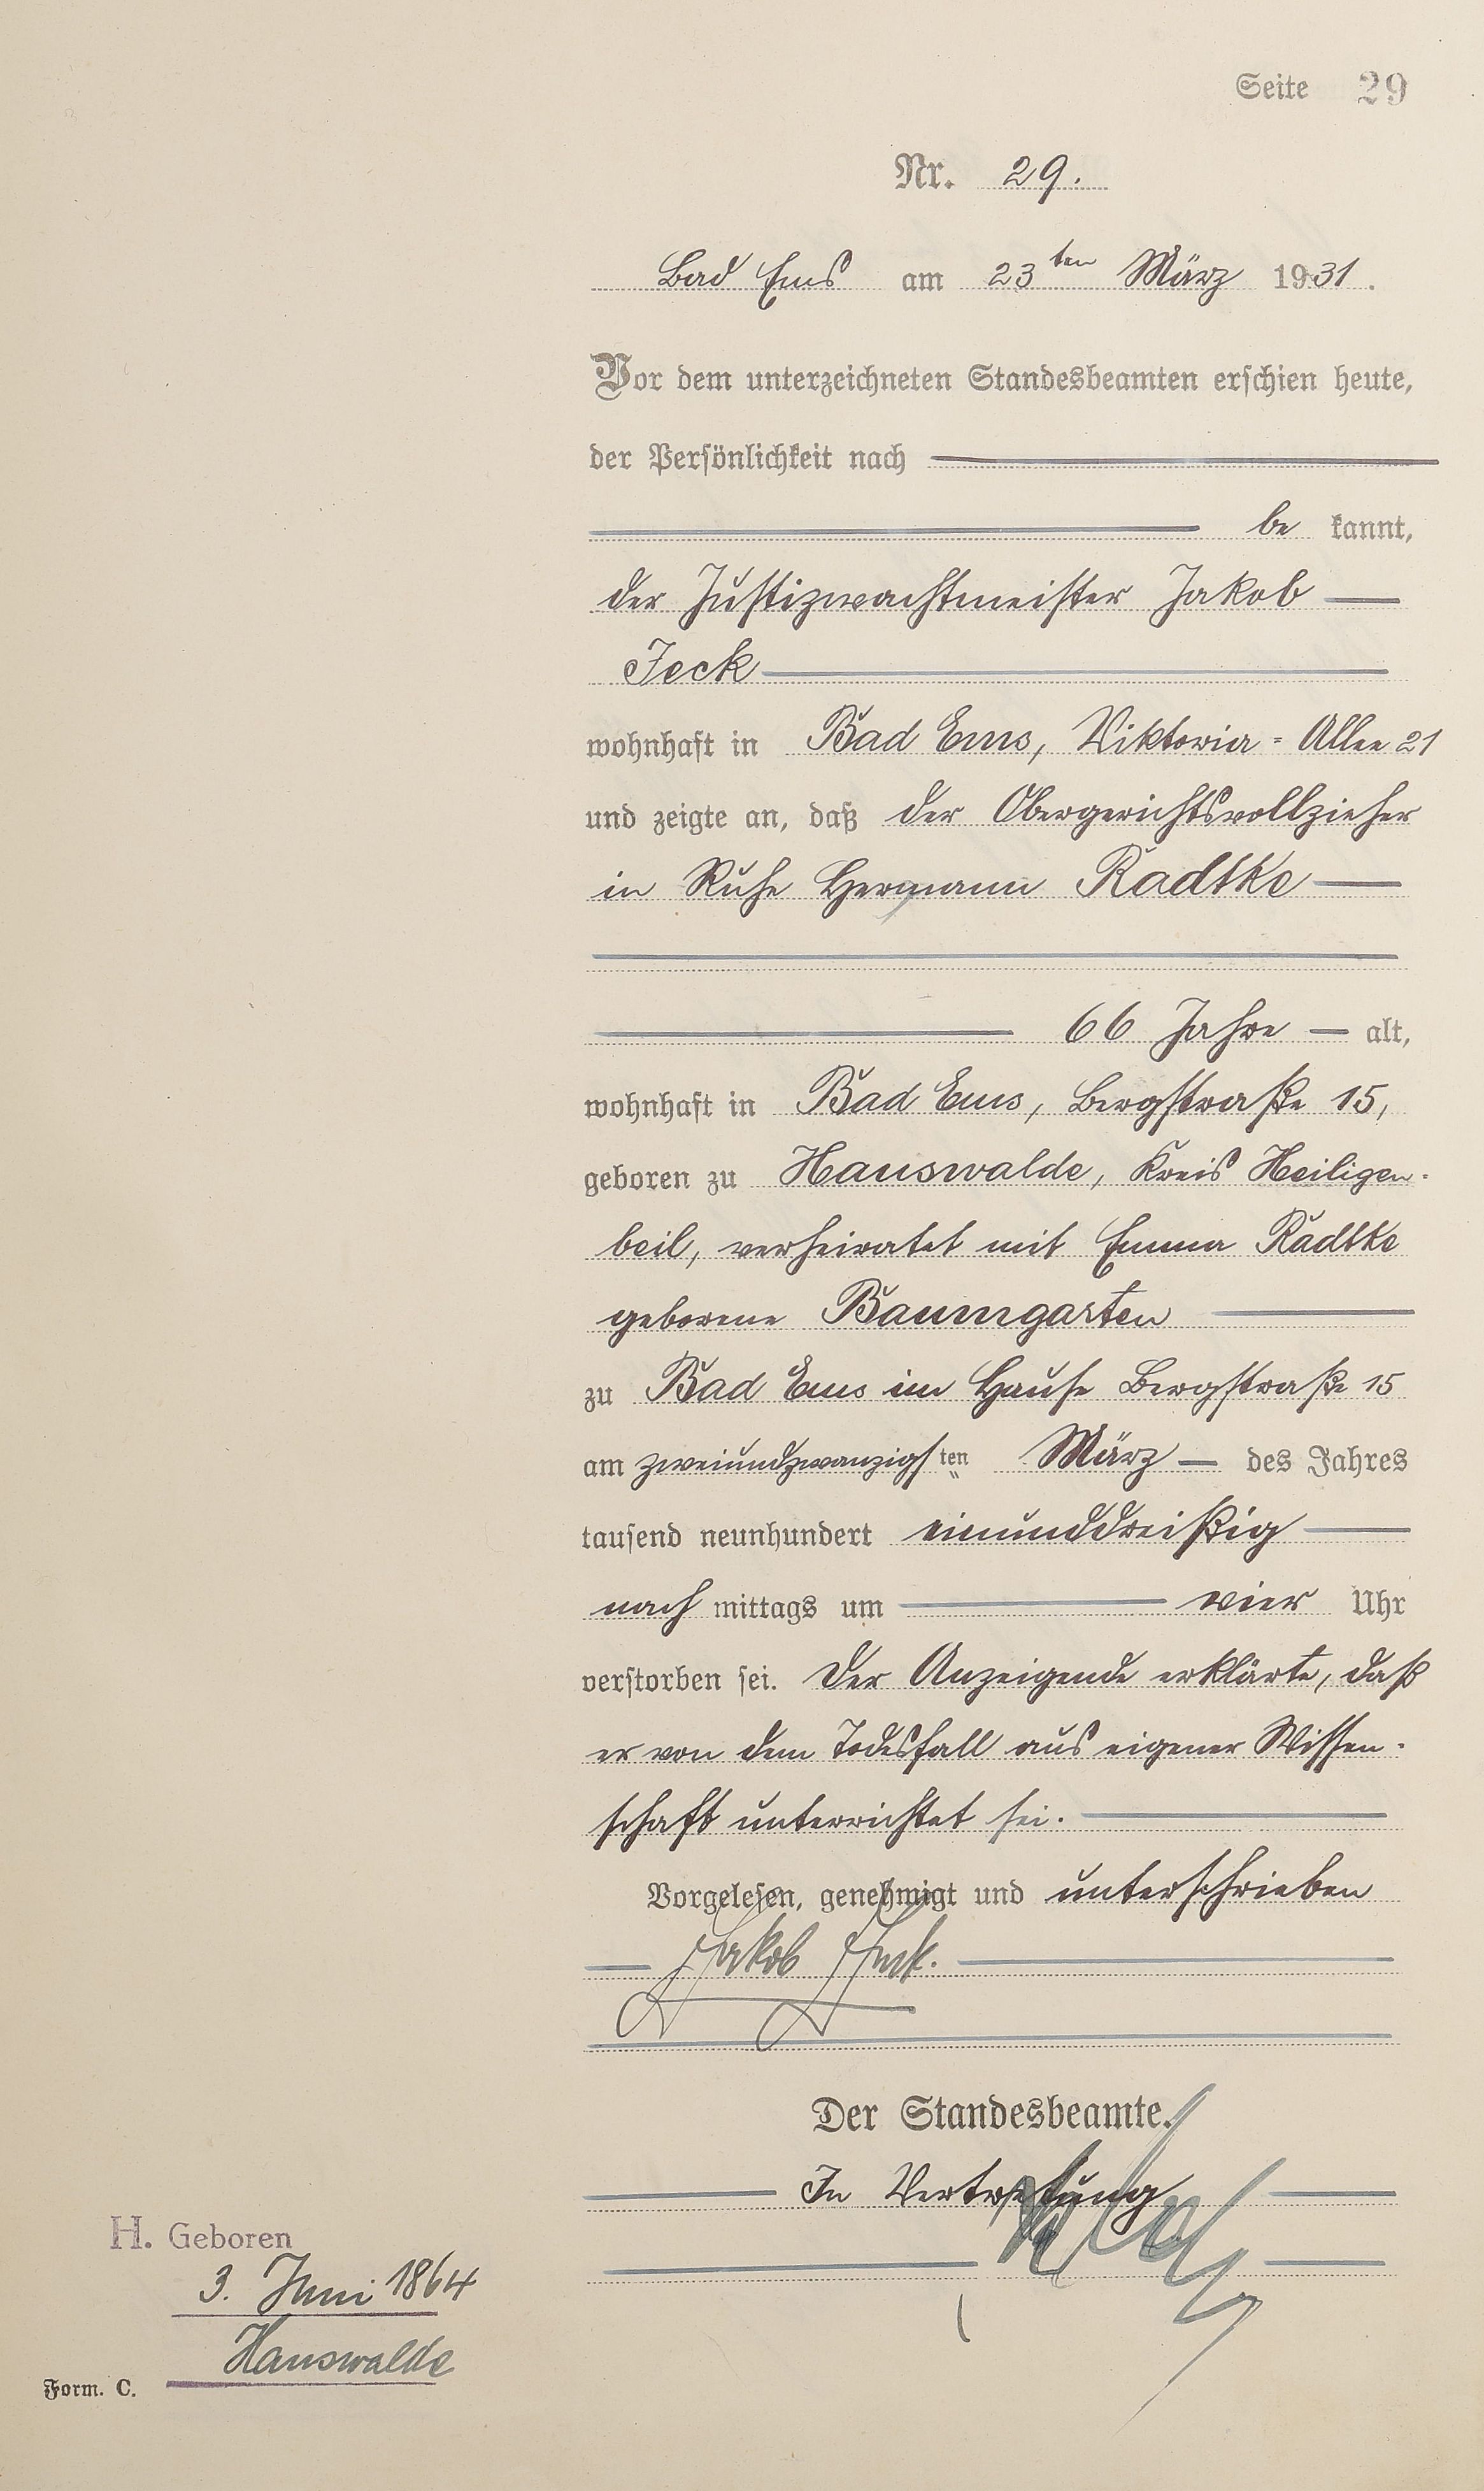 Seite 29
Nr. 29.
Bad Ems am 23ten März 1931.
Vor dem unterzeichneten Standesbeamten erschien heute,
der Persönlichkeit nach
be kannt,
der Justizwachtmeister Jakob
Jeck
wohnhaft in Bad Ems, Viktoria-Allee 21
und zeigte an, daß der Obergerichtsvollzieher
in Ruhe Hermann Radtke
66 Jahre alt,
wohnhaft in Bad Ems, Bergstraße 15,
geboren zu Hauswalde, Kreis Heiligen-
beil, verheiratet mit Emma Radtke
geborene Baumgarten
zu Bad Ems im Hause Bergstraße 15
am zweiundzwanzigsten März des Jahres
tausend neunhundert einunddreißig
nach mittags um vier Uhr
verstorben sei. Der Anzeigende erklärte, daß
er von dem Todesfall aus eigener Wissen-
schaft unterrichtet sei.
Vorgelesen, genehmigt und unterschrieben
Jakob Jeck.
Der Standesbeamte.
In Vertretung
H. Geboren
3. Juni 1864
Hauswalde
Form. C.